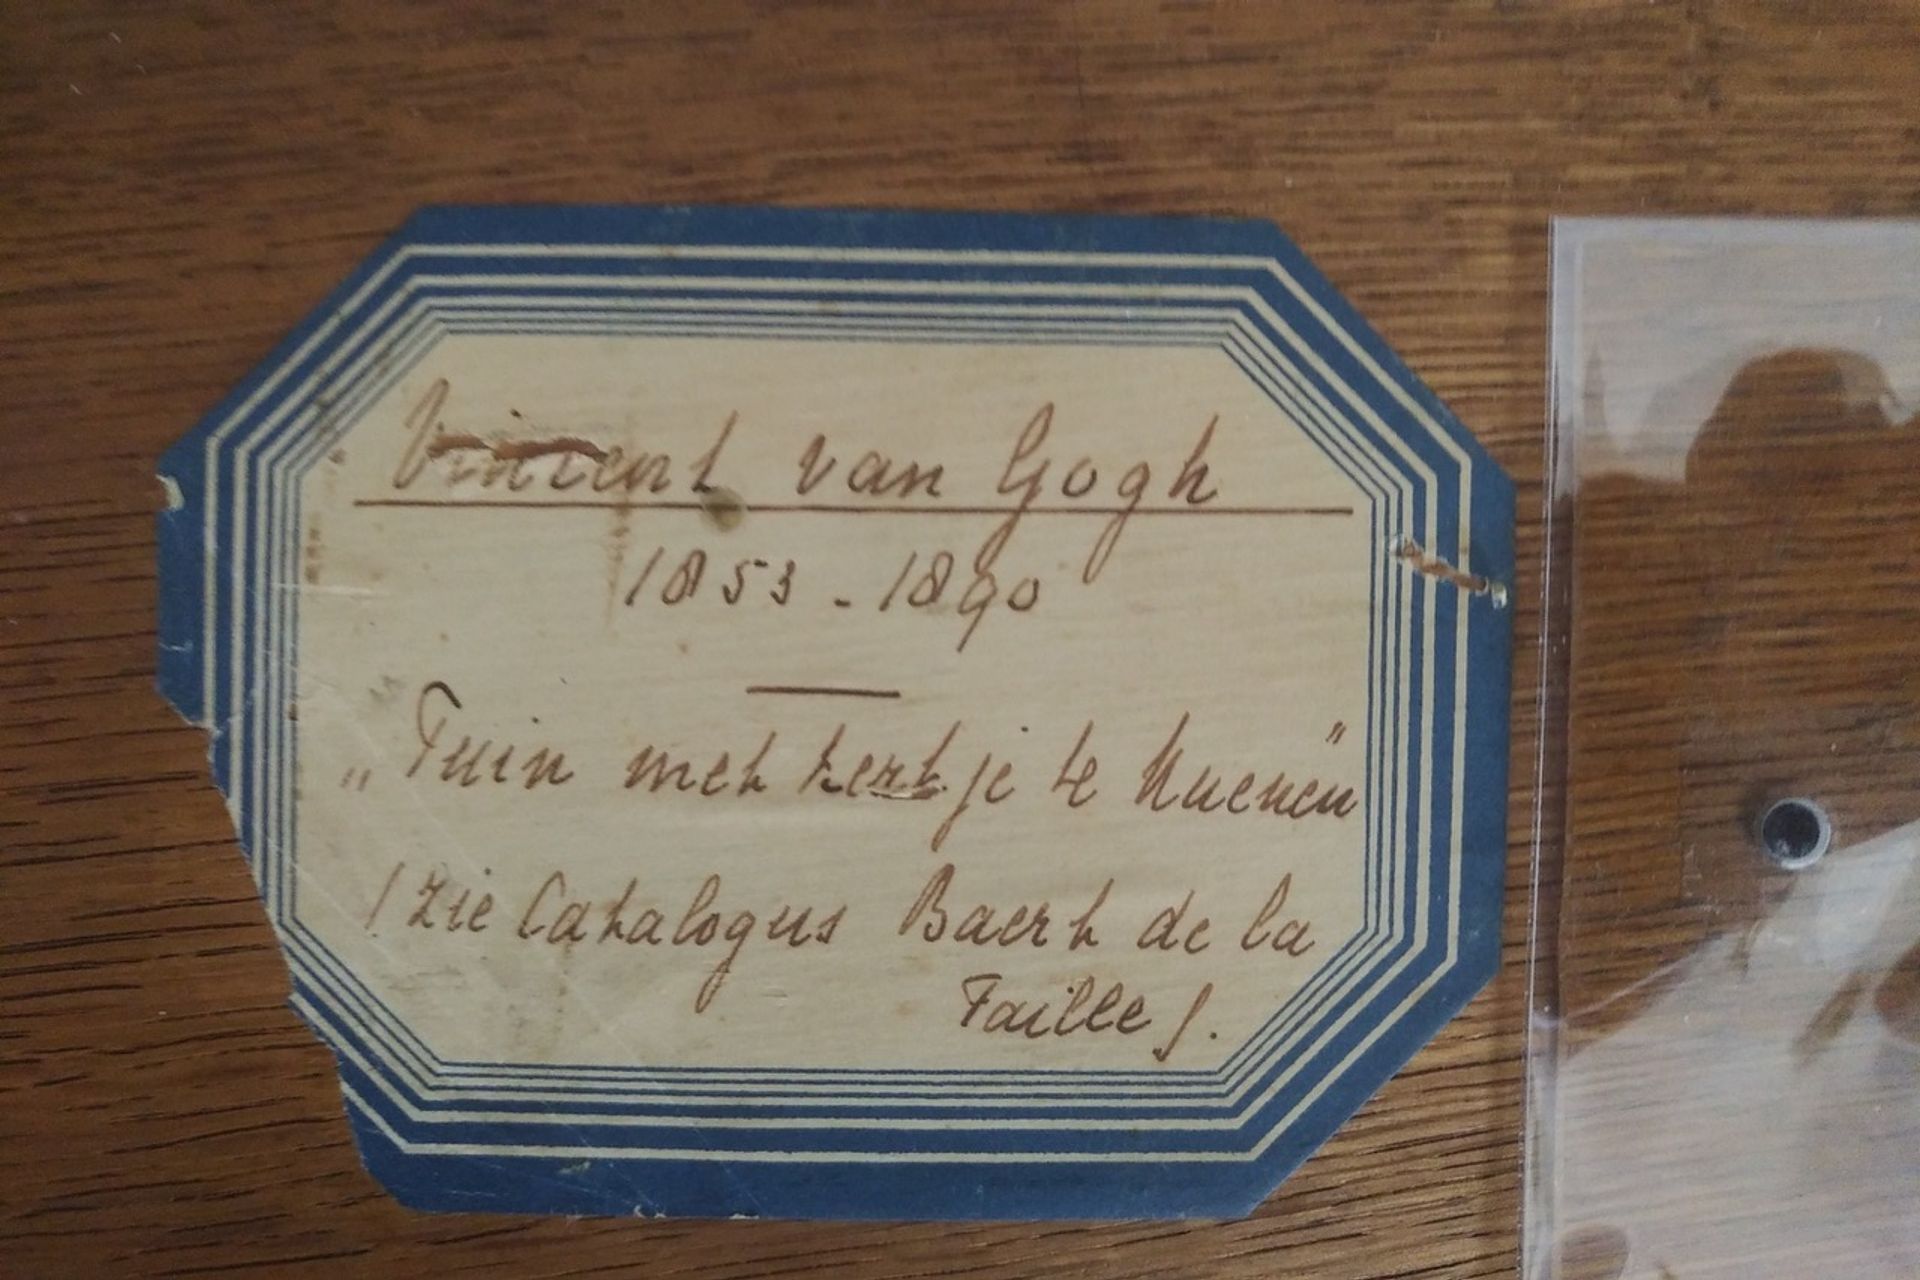 Vincent van Gogh
1853 - 1890
„Tuin met kerkje te Nuenen"
(Zie Catalogus Baert de la
Faille).